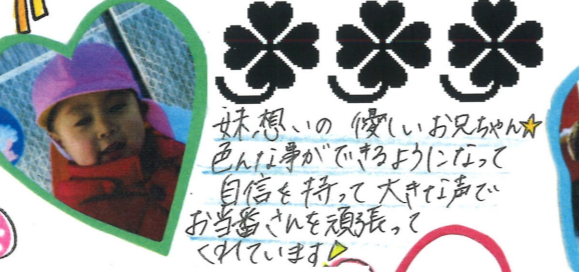 妹想いの 優しいお兄ちゃん☆
色んな事ができるようになって
自信を持って大きな声で
お当番さんを頑張って
くれています!